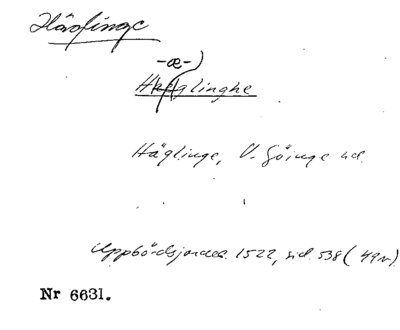 Häglinge
-æ-)
Heglinghe
Häglinge, V. Göinge hd.
Uppbördsjordeb. 1522, sid. 538 (49v)
Nr 6631.